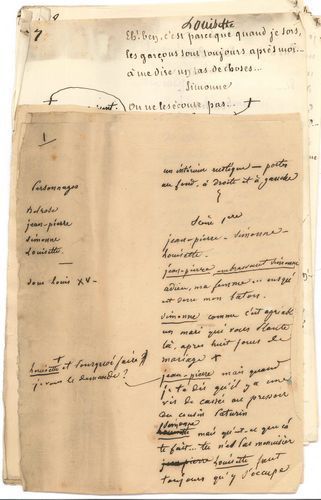 7
Louisette
Eh! ben, c'est parceque quand je sors,
les garçons sont toujours après moi...
à me dire un tas de choses...
Simonne
On ne les écoute pas...
1
Personnages
Belrose
jean-pierre
simonne
Louisette.
sous Louis XV-
un intérieur rustique — portes
au fond, à droite et à gauche
Scène 1ère
jean-pierre - simonne -
louisette.
jean-pierre embrassant simonne
adieu, ma femme...
et donne mon bâton.
simonne comme c'est agréable
un mari qui vous
là, après huit jours de
mariage
louisette et pourquoi faire
je vous le demande?
jean-pierre mais quand
je te dis qu'il y a une
vis de cassée au pressoir
du cousin Paturin
simonne
louisette mais qu'est-ce que ça
te fait... tu n'es pas menuisier
jean-pierre louisette faut
toujours qu'il s'occupe